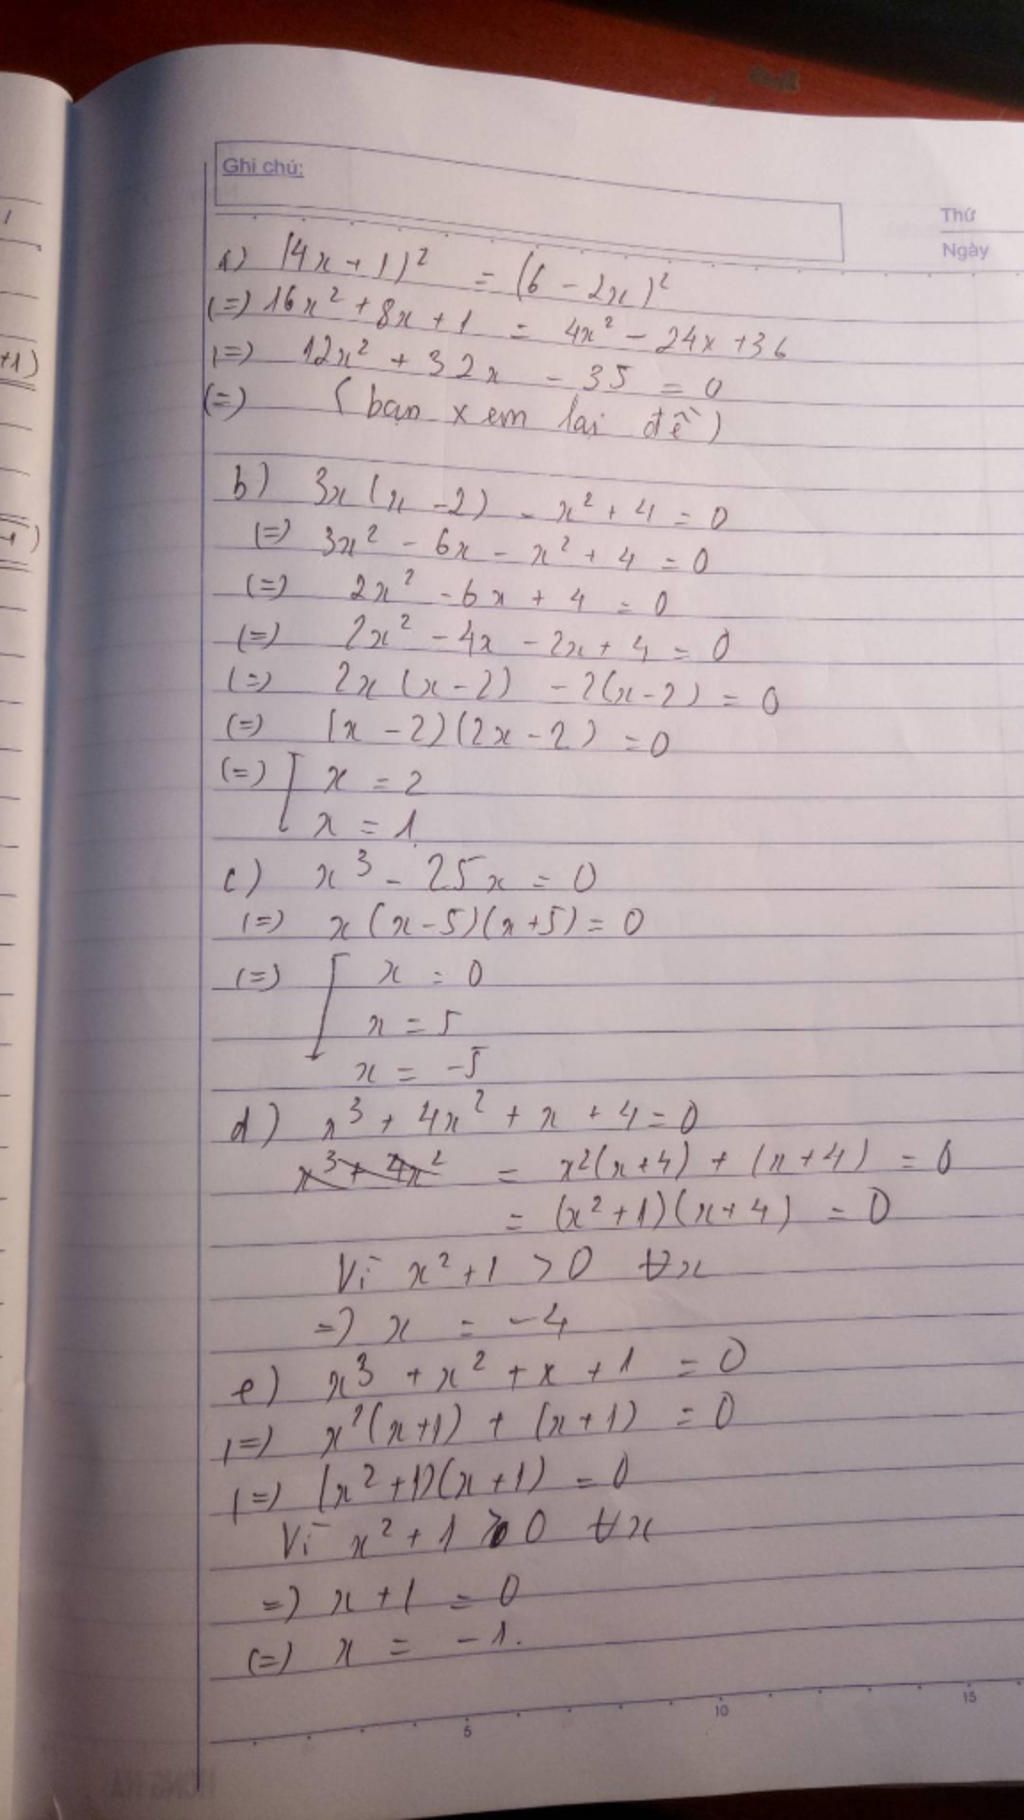 Ghi chú:
Thứ
Ngày
a) (4x + 1)² = (6 - 2x)²
(=) 16x² + 8x + 1 = 4x² - 24x + 36
(=) 12x² + 32x - 35 = 0
(=) (bạn xem lại đề)
b) 3x(x - 2) - x² + 4 = 0
(=) 3x² - 6x - x² + 4 = 0
(=) 2x² - 6x + 4 = 0
(=) 2x² - 4x - 2x + 4 = 0
(=) 2x(x - 2) - 2(x - 2) = 0
(=) (x - 2)(2x - 2) = 0
(=) [ x = 2
x = 1
c) x³ - 25x = 0
(=) x(x - 5)(x + 5) = 0
(=) [ x = 0
x = 5
x = -5
d) x³ + 4x² + x + 4 = 0
x³ + 4x² = x²(x + 4) + (x + 4) = 0
= (x² + 1)(x + 4) = 0
Vì x² + 1 > 0 ∀x
=) x = -4
e) x³ + x² + x + 1 = 0
(=) x²(x + 1) + (x + 1) = 0
(=) (x² + 1)(x + 1) = 0
Vì x² + 1 > 0 ∀x
=) x + 1 = 0
(=) x = -1.
5 10 15
+1)